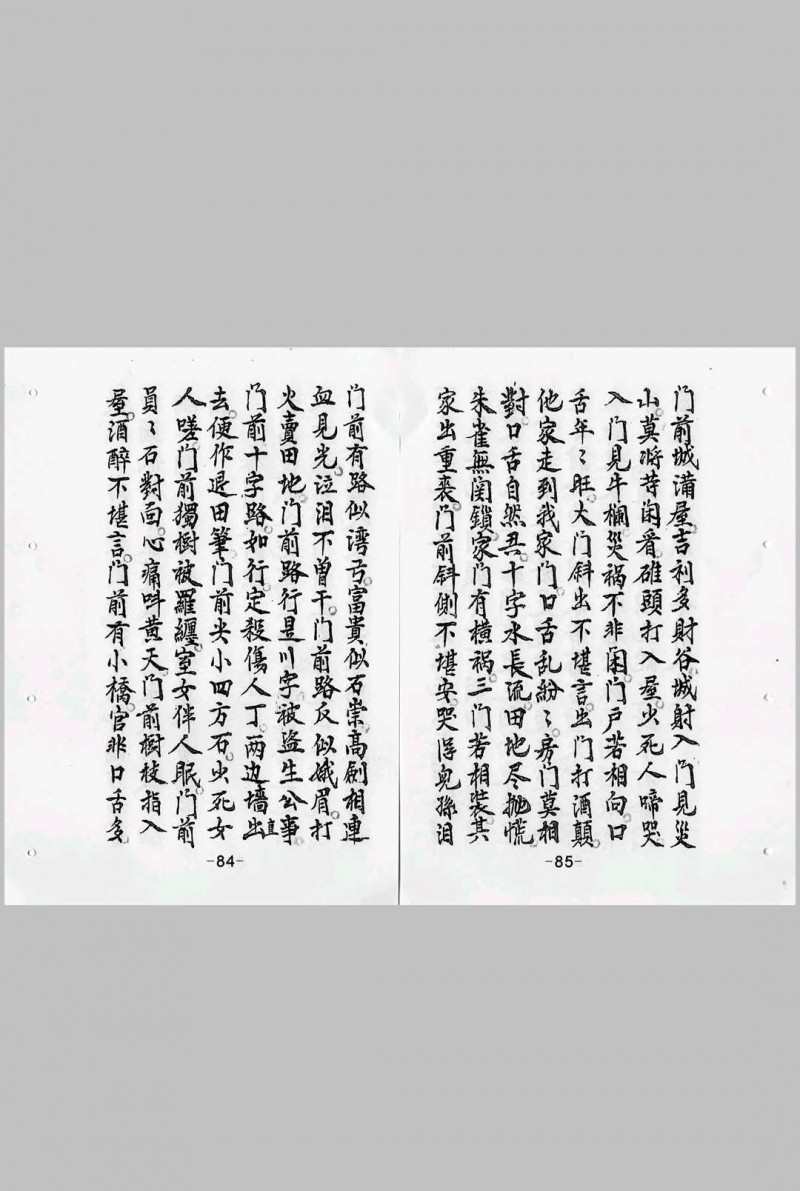 门前城满屋吉利多財谷城射入门見災
山莫將荨闲看碓頭打入屋出死人啼哭
入门見牛欄災祸不非闲门戶若相向口
舌年〻旺大门斜出不堪言出门打酒顛
他家走到我家门口舌乱紛〻房门莫相
對口舌自然兴十字水長流田地尽抛慌
朱雀無関鎖家门有横祸三门若相装其
家出重丧门前斜側不堪安哭浮児孫泪
-85-
门前有路似湾弓富貴似石崇高劍相連
血見光泣泪不曾干门前路反似娥眉打
火賣田地门前路行是川字被盗生公事
门前十字路如行定殺傷人丁两边墙直出
去便作退田筆门前尖小四方石出死女
人嗟门前獨樹被羅纒室女伴人眠门前
員〻石對面心痛呌黄天门前樹枝指入
屋酒醉不堪言门前有小橋官非口舌多
-84-